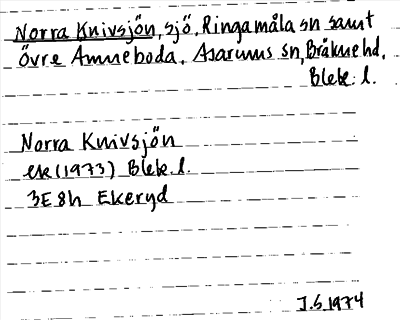 Norra Knivsjön, sjö, Ringamåla sn samt
övre Amneboda, Asarums sn, Bräkne hd,
Blek. l.
Norra Knivsjön
ek (1973) Blek. l.
3E8h Ekeryd
J.S. 1974